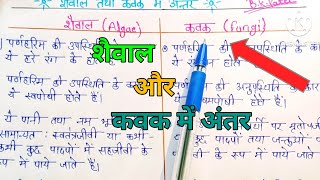 शैवाल तथा कवक में अंतर
शैवाल (Algae)
कवक (fungi)
पर्णहरिम की उपस्थिति के का
ये हरे रंग के हो
शैवाल
और
कवक में अंतर
पर्णहरिम की उपस्थिति के कारण
ये स्वपोषी होते हैं।
की अनुपस्थिति के कार
होते हैं।
ये पानी तथा नम
सामान्यतः स्वतंत्रजीवी या कभी-
कभी कुछ पादपों में सहजीवी के
रूप में पाये जाते हैं।
कुछ पादपों तथा जन्तुओं
वी के रूप में पाये जाते